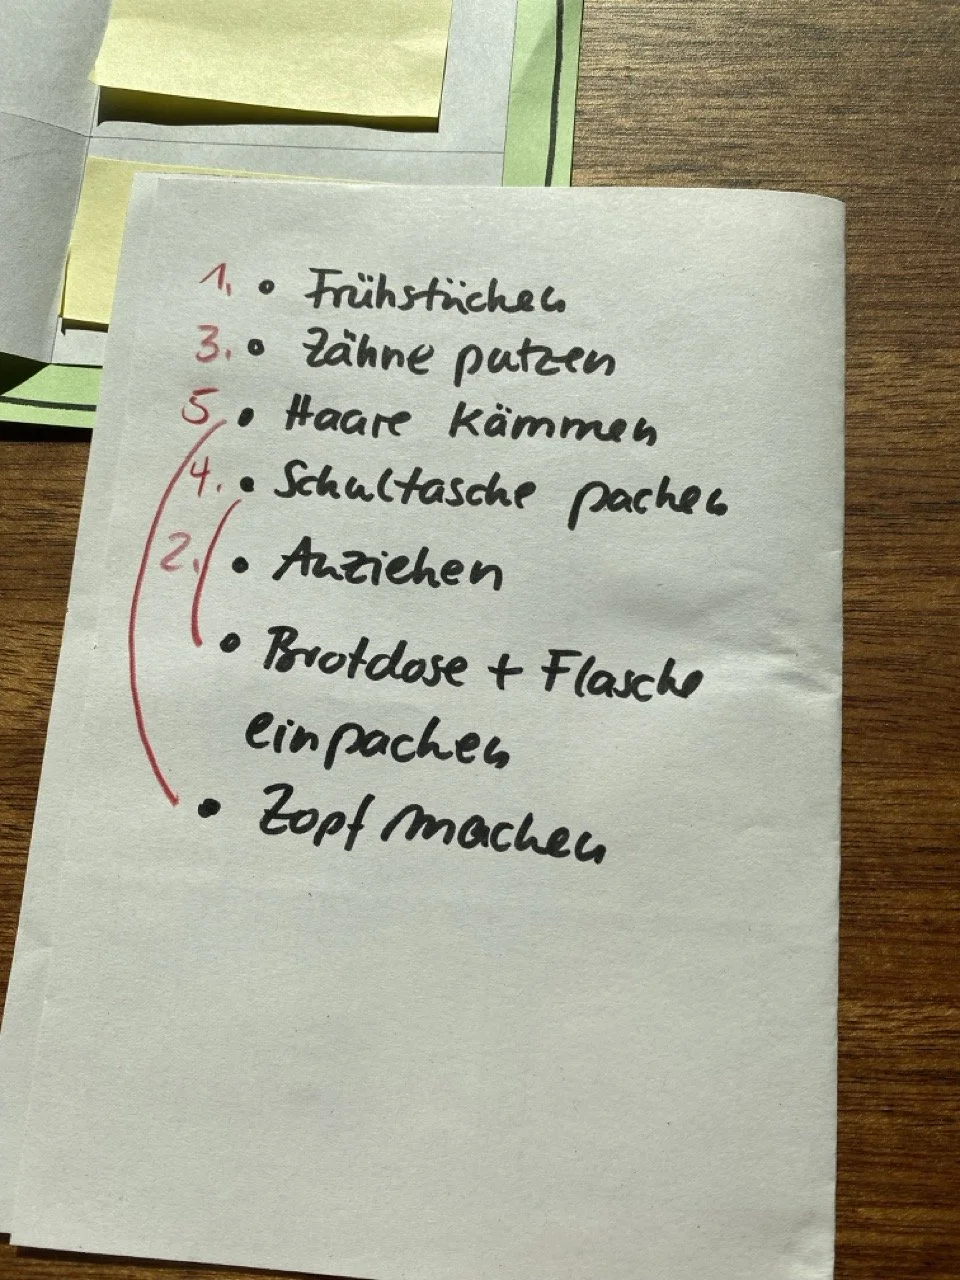 1. • Frühstücken
3. • Zähne putzen
5. • Haare kämmen
4. • Schultasche packen
2. • Anziehen
• Brotdose + Flasche
einpacken
• Zopf machen